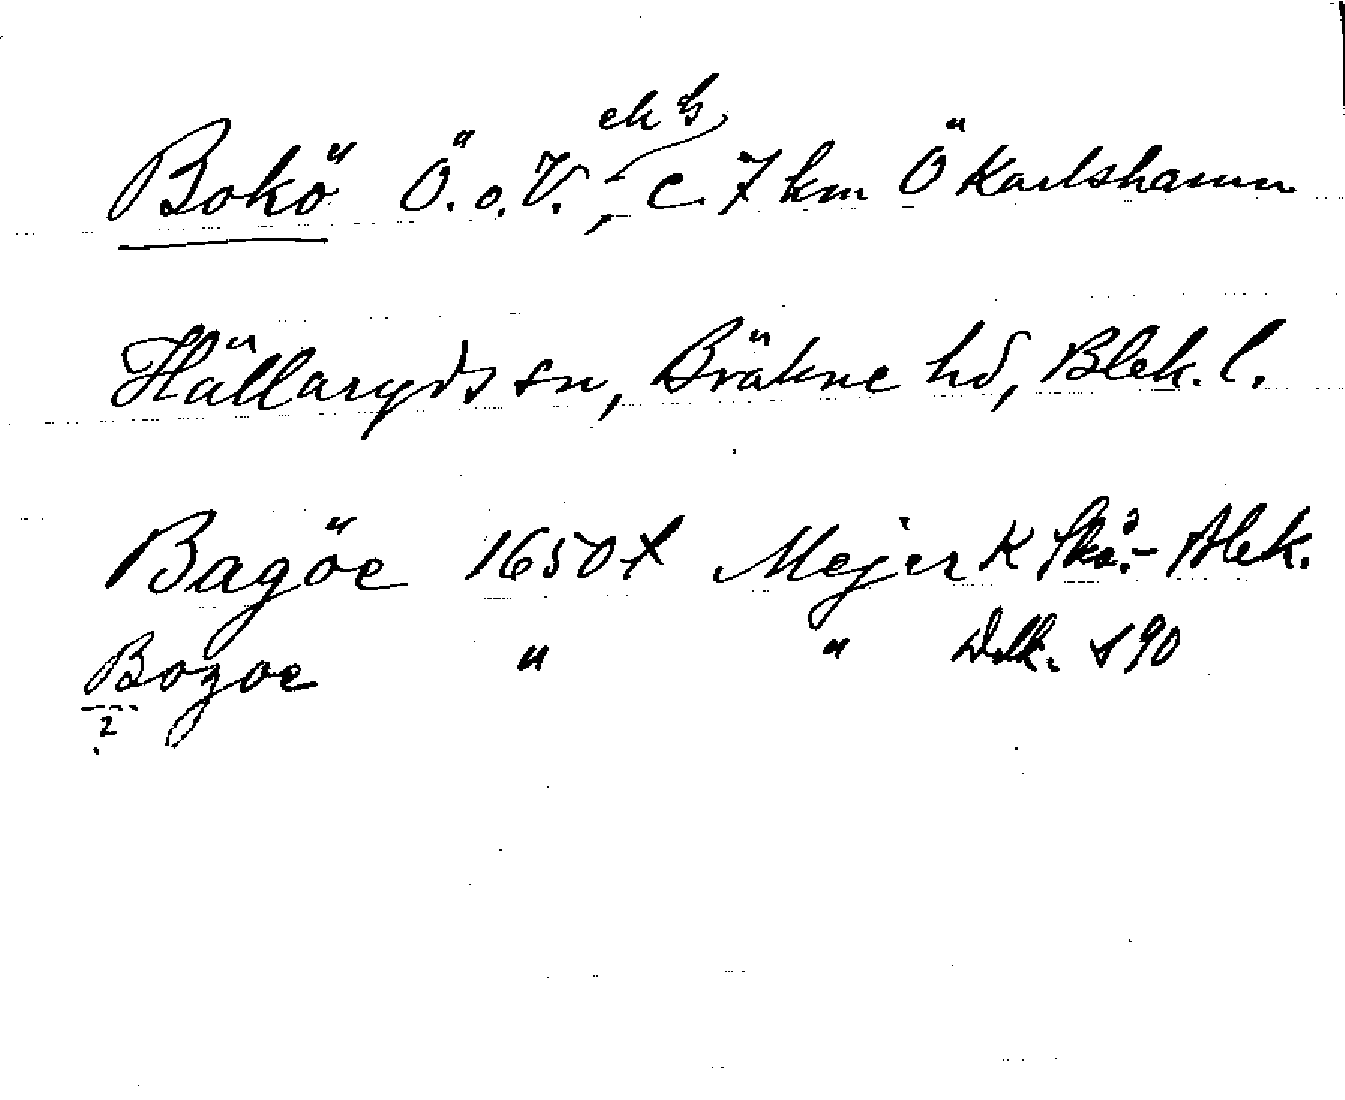 ek h
Bokö Ö. o. V., c. 7 km Ö Karlshamn
Hällaryds sn, Bräkne hd, Blek. l.
Bagöe 1650t Mejer K Skå.- Blek.
Bogoe " " 190
2